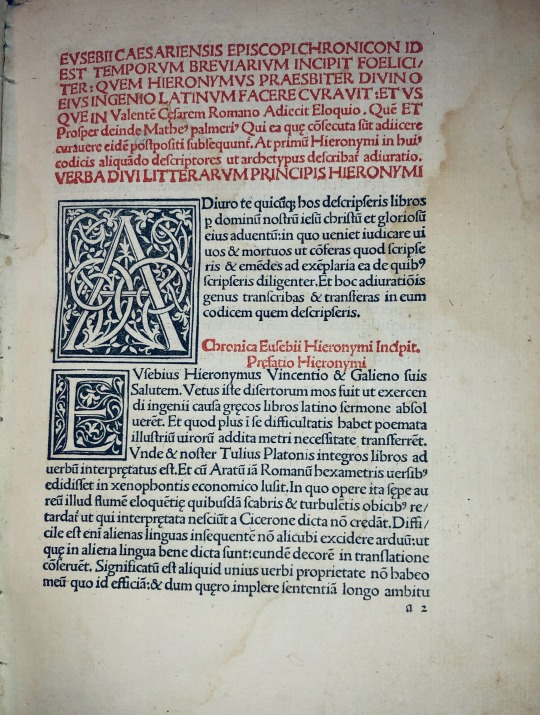 EVSEBII CAESARIENSIS EPISCOPI.CHRONICON ID
EST TEMPORVM BREVIARVM INCIPIT FOELICI/
TER: QVEM HIERONYMVS PRAESBITER DIVINO
EIVS INGENIO LATINVM FACERE CVRAVIT: ET VS
QVE IN Valentē Cęsarem Romano Adiecit Eloquio. Quē ET
Prosper deinde Matheꝰ palmeriꝰ Qui ea quę cōsecuta sūt adiicere
curauere eidē postpositi subsequunt̄. At primū Hieronymi in huiꝰ
codicis aliquādo descriptores ut archetypus describat̄ adiuratio.
VERBA DIVI LITTERARVM PRINCIPIS HIERONYMI
ADiuro te quicūqꝫ hos descripseris libros
ꝑ dominū nostrū iesū christū et gloriosū
eius aduentū: in quo ueniet iudicare ui
uos & mortuos ut cōferas quod scripse
ris & emēdes ad exēplaria ea de quibꝰ
scripseris diligenter. Et hoc adiuratiōis
genus transcribas & transferas in eum
codicem quem descripseris.
Chronica Eusebii Hieronymi Incipit.
Prefatio Hieronymi
EVsebius Hieronymus Vincentio & Galieno suis
Salutem. Vetus iste disertorum mos fuit ut exercen
di ingenii causa gręcos libros latino sermone absol
uerēt. Et quod plus ī se difficultatis habet poemata
illustriū uirorū addita metri necessitate transferrēt.
Vnde & noster Tulius Platonis integros libros ad
uerbū interpretatus est. Et cū Aratū iā Romanū hexametris uersibꝰ
edidisset in xenophontis economico lusit. In quo opere ita sępe au
reū illud flumē eloquētię quibusdā scabris & turbulētis obicibꝰ re/
tardat̄ ut qui interpretata nesciūt a Cicerone dicta nō credāt. Diffi/
cile est eni̅ alienas linguas insequentē nō alicubi excidere arduū: ut
quę in aliena lingua bene dicta sunt: eundē decorē in translatione
cōseruēt. Significatū est aliquid unius uerbi proprietate nō habeo
meū quo id efficiā: & dum quęro implere sententiā longo ambitu
a 2